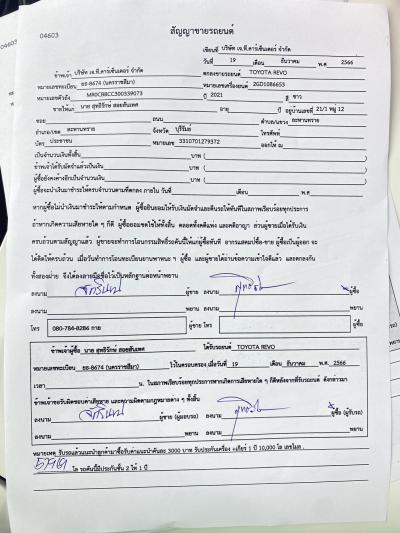 04603
สัญญาขายรถยนต์
เขียนที่ บริษัท เจ.ที.คาร์เซ็นเตอร์ จำกัด
วันที่ 19 เดือน ธันวาคม พ.ศ 2566
ข้าพเจ้า บริษัท เจ.ที.คาร์เซ็นเตอร์ จำกัด ตกลงขายรถยนต์ TOYOTA REVO
หมายเลขทะเบียน ยธ-8674 (นครราชสีมา) หมายเลขเครื่องยนต์ 2GD1086653
หมายเลขตัวถัง MR0CB8CC300339073 ปี 2021 สี ขาว
ขายให้แก่ นาย สุทธิรักษ์ สอยสันเทศ อายุ ปี อยู่บ้านเลขที่ 21/1 หมู่ 12
ซอย ถนน ตำบล/แขวง ละหานทราย
อำเภอ/เขต ละหานทราย จังหวัด บุรีรัมย์ โทรศัพท์
บัตร ประชาชน หมายเลข 3310701279372 ออกให้ ณ
เป็นจำนวนเงินทั้งสิ้น บาท ( )
ข้าพเจ้าได้รับมัดจำแล้วเป็นเงิน บาท ( )
ผู้ซื้อยังคงค้างอีกเป็นจำนวนเงิน บาท ( )
ผู้ซื้อจะนำเงินมาชำระให้ครบจำนวนตามที่ตกลง ภายใน วันที่ เดือน พ.ศ
หากผู้ซื้อไม่นำเงินมาชำระให้ตามกำหนด ผู้ซื้อยินยอมให้ริบเงินมัดจำและคืนรถให้ทันทีในสภาพเรียบร้อยทุกประการ
ถ้าหากเกิดความเสียหายใด ๆ ก็ดี ผู้ซื้อยอมชดใช้ให้ทั้งสิ้น ตลอดทั้งคดีแพ่ง และคดีอาญา ส่วนผู้ขายเมื่อได้รับเงิน
ครบถ้วนตามสัญญาแล้ว ผู้ขายจะทำการโอนกรรมสิทธิ์รถคันนี้ให้แก่ผู้ซื้อทันที อากรแสตมป์ซื้อ-ขาย ผู้ซื้อเป็นผู้ออก จะ
ได้คิดให้ครบถ้วน เมื่อวันทำการโอนทะเบียนยานพาหนะ ฯ ผู้ซื้อ และผู้ขายได้อ่านข้อความเข้าใจดีแล้ว และตกลงกัน
ทั้งสองฝ่าย จึงได้ลงลายมือชื่อไว้เป็นหลักฐานต่อหน้าพยาน
ลงนาม ผู้ขาย ลงนาม ผู้ซื้อ
ลงนาม พยาน ลงนาม พยาน
โทร 080-784-8286 กาย ผู้ขาย โทร ผู้ซื้อ
ข้าพเจ้าผู้ซื้อ นาย สุทธิรักษ์ สอยสันเทศ ได้รับรถยนต์ TOYOTA REVO
หมายเลขทะเบียน ยธ-8674 (นครราชสีมา) ไว้ในครอบครอง เมื่อวันที่ 19 เดือน ธันวาคม พ.ศ. 2566
เวลา น. ในสภาพเรียบร้อยทุกประการหากเกิดการเสียหายใด ๆ ก็ดีหลังจากที่รับรถยนต์ ดังกล่าวมา
ข้าพเจ้าขอรับผิดชอบค่าเสียหาย และความผิดตามกฎหมายต่าง ๆ ทั้งสิ้น
ลงนาม ผู้ขาย (ผู้มอบรถ) ลงนาม ผู้ซื้อ (ผู้รับรถ)
ลงนาม พยาน ลงนาม พยาน
หมายเหตุ รับรถแล้วแนะนำลูกค้ามาซื้อรับค่าแนะนำคันละ 3000 บาท รับประกันเครื่อง +เกียร์ 1 ปี 10,000 โล เลขไมล์
โล รถคันนี้มีประกันชั้น 2 ให้ 1 ปี